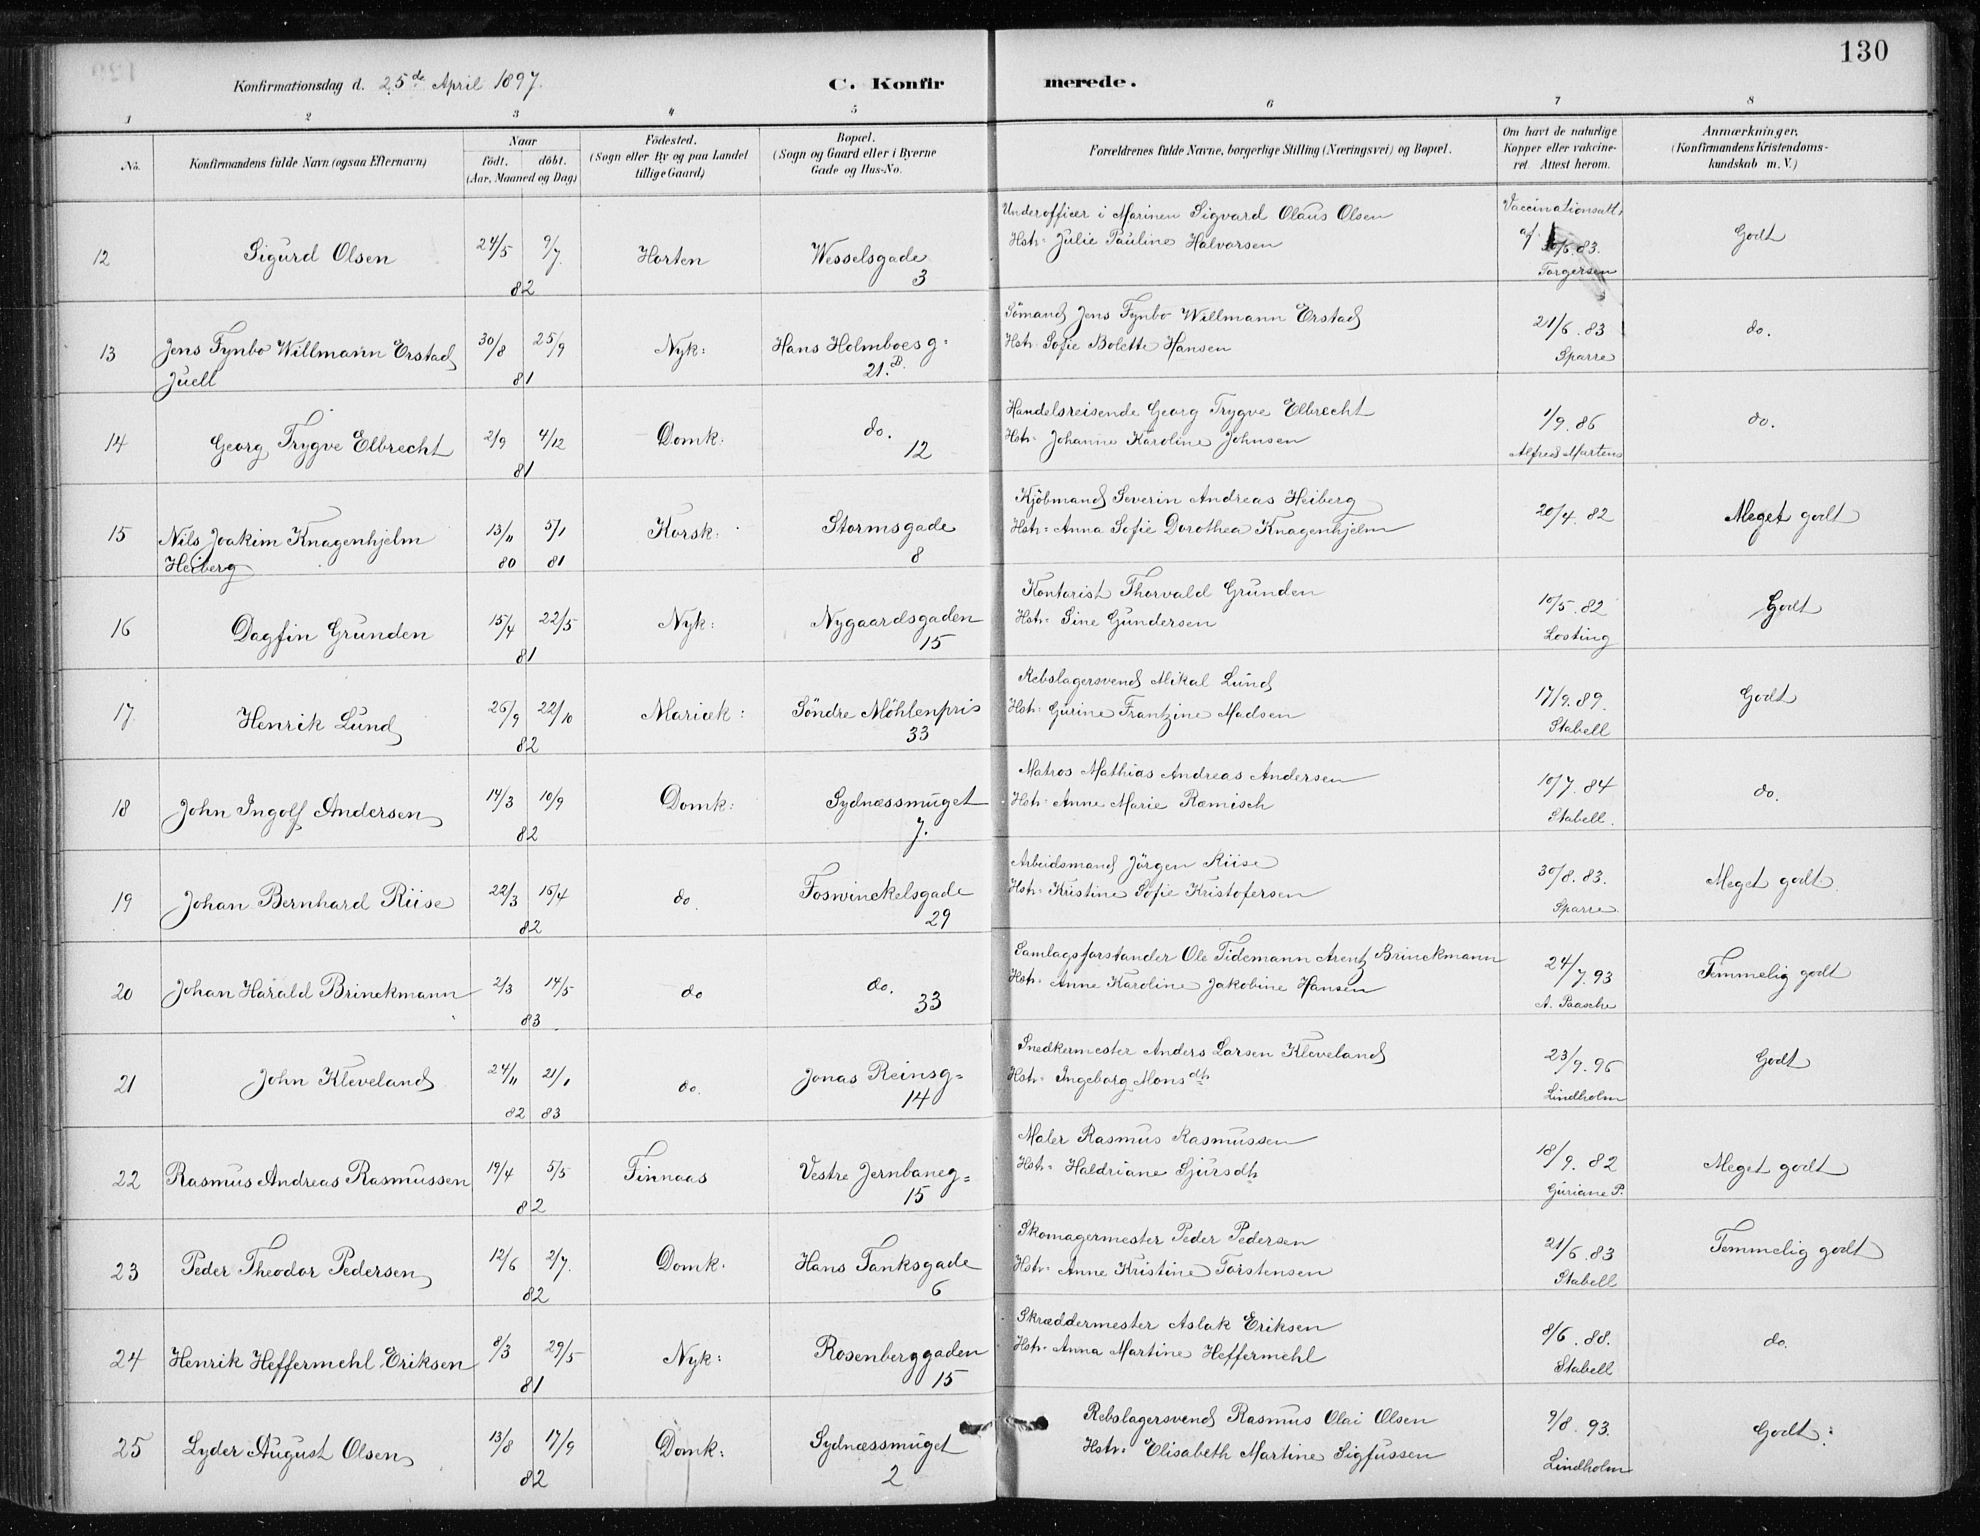 130
Konfirmationsdag d. 25de April 1897.
C. Konfirmerede.
1 2 3 4 5 6 7 8
No. Konfirmandens fulde Navn (ogsaa Efternavn) Naar födt. döbt. (Aar, Maaned og Dag) Födested. (Sogn eller By og paa Landet tillige Gaard) Bopæl. (Sogn og Gaard eller i Byerne Gade og Hus-No. Forældrenes fulde Navne, borgerlige Stilling (Næringsvei) og Bopæl. Om havt de naturlige Kopper eller vakcineret Attest herom. Anmærkninger, (Konfirmandens Kristendomskundskab m. V.)
12 Sigurd Olsen 24/5 9/7 82 Horten Wesselsgade 3
Underofficer i Marinen Sigvard Olaus Olsen
Hstr. Julie Pauline Halvorsen
Vaccinationsatt. af 30/5.83. Torgersen
Godt
13 Jens Fynbo Willmann Erstad Juell 30/8 25/9 81 Nyk: Hans Holmboesg: 21.B.
Sömand Jens Fynbo Willmann Erstad
Hstr. Sofie Bolette Hansen
21/6.83 Sparre
do.
14 Georg Trygve Elbrecht 2/9 4/12 81 Domk: do. 12
Handelsreisende Georg Trygve Elbrecht
Hstr. Johanne Karoline Johnsen
1/9.86 Alfred Martens
do.
15 Nils Joakim Knagenhjelm Heiberg 13/11 80 5/1 81 Korsk: Stormsgade 8
Kjöbmand Severin Andreas Heiberg
Hstr. Anna Sofie Dorothea Knagenhjelm
20/4.82
Meget godt
16 Dagfin Grunden 15/4 22/5 81 Nyk: Nygaardsgaden 15
Kontorist Thorvald Grunden
Hstr. Sine Gundersen
10/5.82 Losting
Godt
17 Henrik Lund 26/9 22/10 82 Mariæk: Söndre Möhlenpris 33
Rebslagersvend Mikal Lund
Hstr. Gurine Frantzine Madsen
17/9.89. Stabell
Godt
18 John Ingolf Andersen 14/3 10/9 82 Domk: Sydnæssmuget 7.
Matros Mathias Andreas Andersen
Hstr. Anne Marie Ræmisch
10/7.84 Stabell.
do.
19 Johan Bernhard Riise 22/3 16/4 82 do. Foswinckelsgade 29
Arbeidsmand Jörgen Riise
Hstr. Kristine Sofie Kristofersen
30/8.83. Sparre.
Meget godt.
20 Johan Harald Brinckmann 2/3 14/5 83 do do. 33
Samlagsforstander Ole Tidemann Arentz Brinckmann
Hstr. Anne Karoline Jakobine Hansen
24/7.93 A. Paasche
Temmelig godt
21 John Kleveland 24/11 82 21/1 83 do. Jonas Reinsg= 14
Snedkermester Anders Larsen Kleveland
Hstr. Ingeborg Monsdtr
23/9.96 Lindholm
Godt
22 Rasmus Andreas Rasmussen 19/4 5/5 82 Finnaas Vestre Jernbaneg= 15
Maler Rasmus Rasmussen
Hstr. Haldriane Sjursdtr
18/9.82 Guriane P.
Meget godt
23 Peder Theodor Pedersen 12/6 2/7 82 Domk. Hans Tanksgade 6
Skomagermester Peder Pedersen
Hstr. Anne Kristine Torstensen
21/6.83 Stabell
Temmelig godt
24 Henrik Heffermehl Eriksen 8/3 29/5 81 Nyk: Rosenberggaden 15
Skræddermester Aslak Eriksen
Hstr. Anna Martine Heffermehl
8/6.88. Stabell
do.
25 Lyder August Olsen 13/8 17/9 82 Domk: Sydnæssmuget 2
Rebslagersvend Rasmus Olai Olsen
Hstr. Elisabeth Martine Sigfussen
9/8.93. Lindholm
Godt.